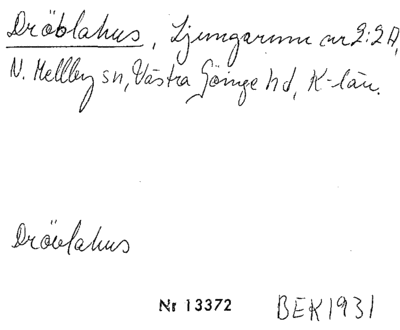 Dröblahus, Ljungarum nr 2:2A,
N. Mellby sn, Västra Göinge hd, K-län.
Drövlahus
Nr 13372 BEK 1931